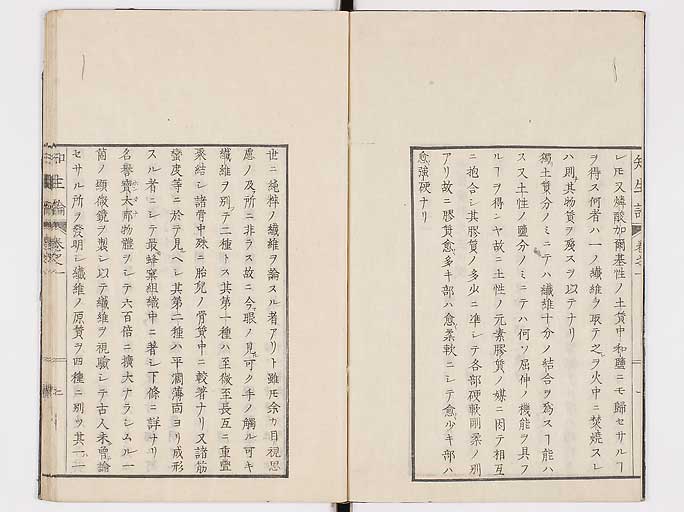 レ𪜈又燐酸加爾基性ノ土質中和鹽ニモ歸セサルヿ
ヲ得ス何者ハ一ノ纎維ヲ取テ之ヲ火中ニ焚燒スレ
ハ則其物質ヲ殘スヲ以テナリ
獨土質分ノミニテハ纎維十分ノ結合ヲ爲スヿ能ハ
ス又土性ノ鹽分ノミニテハ何ソ屈伸ノ機能ヲ具フ
ルヿヲ得ンヤ故ニ土性ノ元素膠質ノ媒ニ因テ相互
ニ抱合シ其膠質ノ多少ニ準シテ各部硬軟剛柔ノ別
アリ故ニ膠質愈多キ部ハ愈柔軟ニシテ愈少キ部ハ
愈强硬ナリ
知生論 卷之一
世ニ純粹ノ纎維ヲ論スル者アリト雖𪜈余カ目視思
慮ノ及所ニ非ラス故ニ今眼ノ見可ク手ノ觸ル可キ
纎維ヲ別テ二種トス其第一種ハ至微至長互ニ重疊
聚結シ諸骨中殊ニ胎兒ノ骨質中ニ較著ナリ又諸筋
蠻皮等ニ於テ見ヘシ其第二種ハ平濶薄面ヨリ成形
スル者ニシテ最蜂窠組織中ニ著シ下條ニ詳ナリ
名譽寶太郎物體ヲシテ六百倍ニ擴大ナラシムル一
箇ノ顯微鏡ヲ製シ以テ纎維ヲ視驗シテ古人未曾論
セサル所ヲ發明シ纎維ノ原質ヲ四種ニ別ツ其一一